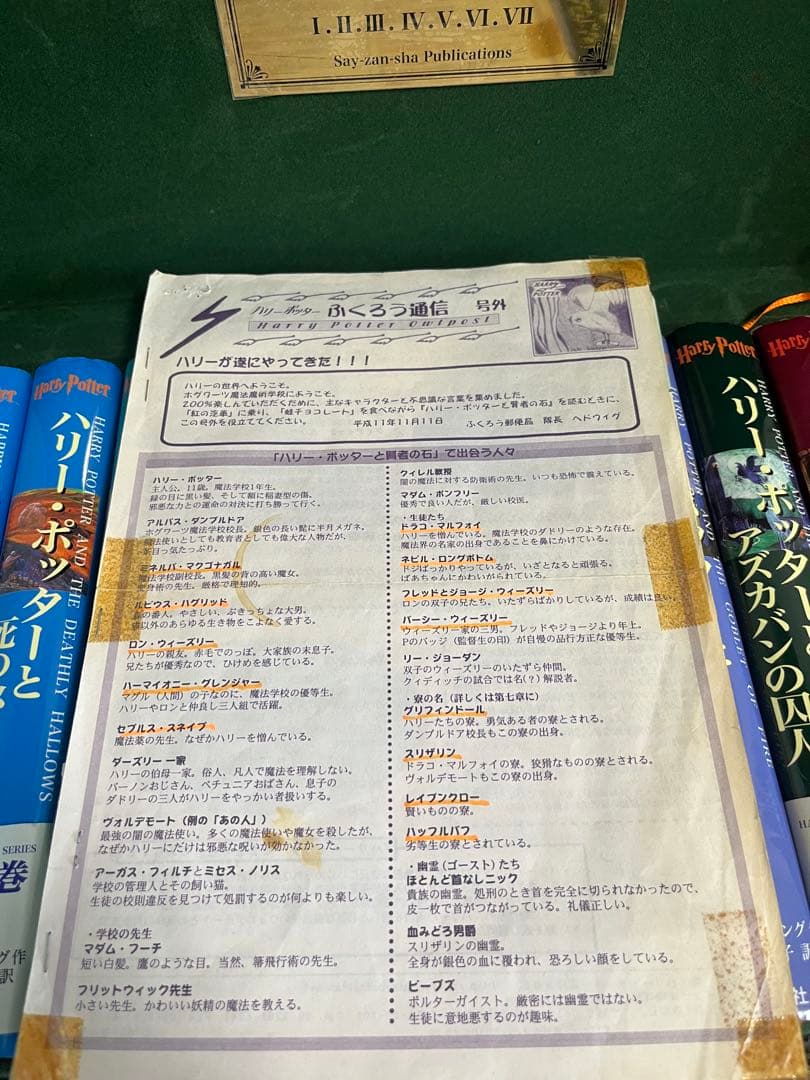 I.II.III.IV.V.VI.VII
Say-zan-sha Publications
ハリー・ポッター ふくろう通信 号外
Harry Potter Owlpost
HARRY POTTER
ハリーが遂にやってきた！！！
ハリーの世界へようこそ。
ホグワーツ魔法魔術学校にようこそ。
200％楽しんでいただくために、主なキャラクターと不思議な言葉を集めました。
「紅の汽車」に乗り、「蛙チョコレート」を食べながら『ハリー・ポッターと賢者の石』を読むときに、
この号外を役立ててください。 平成11年11月11日 ふくろう郵便局 隊長 ヘドウィグ
「ハリー・ポッターと賢者の石」で出会う人々
ハリー・ポッター
主人公。11歳。魔法学校1年生。
緑の目に黒い髪、そして額に稲妻型の傷。
邪悪な力との運命の対決に打ち勝って行く。
アルバス・ダンブルドア
ホグワーツ魔法学校校長。銀色の長い髭に半月メガネ。
魔法使いとしても教育者としても偉大な人物だが、
茶目っ気たっぷり。
ミネルバ・マクゴナガル
魔法学校副校長。黒髪の背の高い魔女。
変身術の先生。厳格で理知的。
ルビウス・ハグリッド
の番人。やさしい、ぶきっちょな大男。
以外のあらゆる生き物をこよなく愛する。
ロン・ウィーズリー
ハリーの親友。赤毛でのっぽ。大家族の末息子。
兄たちが優秀なので、ひけめを感じている。
ハーマイオニー・グレンジャー
マグル（人間）の子なのに、魔法学校の優等生。
ハリーやロンと仲良し三人組で活躍。
セブルス・スネイプ
魔法薬の先生。なぜかハリーを憎んでいる。
ダーズリー 一家
ハリーの伯母一家。俗人、凡人で魔法を理解しない。
バーノンおじさん、ペチュニアおばさん、息子の
ダドリーの三人がハリーをやっかい者扱いする。
ヴォルデモート（例の「あの人」）
最強の闇の魔法使い。多くの魔法使いや魔女を殺したが、
なぜかハリーにだけは邪悪な呪いが効かなかった。
アーガス・フィルチとミセス・ノリス
学校の管理人とその飼い猫。
生徒の校則違反を見つけて処罰するのが何よりも楽しい。
・学校の先生
マダム・フーチ
短い白髪。鷹のような目。当然、箒飛行術の先生。
フリットウィック先生
小さい先生。かわいい妖精の魔法を教える。
クィレル教授
闇の魔法に対する防衛術の先生。いつも恐怖で震えている。
マダム・ポンフリー
優秀で良い人だが、厳しい校医。
・生徒たち
ドラコ・マルフォイ
ハリーを憎んでいる。魔法学校のダドリーのような存在。
魔法界の名家の出身であることを鼻にかけている。
ネビル・ロングボトム
ドジばかりやっているが、いざとなると頑張る。
ばあちゃんにかわいがられている。
フレッドとジョージ・ウィーズリー
ロンの双子の兄たち。いたずらばかりしているが、成績は良い。
パーシー・ウィーズリー
ウィーズリー家の三男。フレッドやジョージより年上。
Pのバッジ（監督生の印）が自慢の品行方正な優等生。
リー・ジョーダン
双子のウィーズリーのいたずら仲間。
クィディッチの試合では名（？）解説者。
・寮の名（詳しくは第七章に）
グリフィンドール
ハリーたちの寮。勇気ある者の寮とされる。
ダンブルドア校長もこの寮の出身。
スリザリン
ドラコ・マルフォイの寮。狡猾なものの寮とされる。
ヴォルデモートもこの寮の出身。
レイブンクロー
賢いものの寮。
ハッフルパフ
劣等生の寮とされている。
・幽霊（ゴースト）たち
ほとんど首なしニック
貴族の幽霊。処刑のとき首を完全に切られなかったので、
皮一枚で首がつながっている。礼儀正しい。
血みどろ男爵
スリザリンの幽霊。
全身が銀色の血に覆われ、恐ろしい顔をしている。
ピーブズ
ポルターガイスト。厳密には幽霊ではない。
生徒に意地悪するのが趣味。
Harry Potter
ハリー・ポッターと
HARRY POTTER AND THE DEATHLY HALLOWS
SERIES
巻
作
訳
GOBLET OF FIRE
Harry Potter
ハリー・ポッター
アズカバンの囚人
HARRY POTTER AND THE
Harry